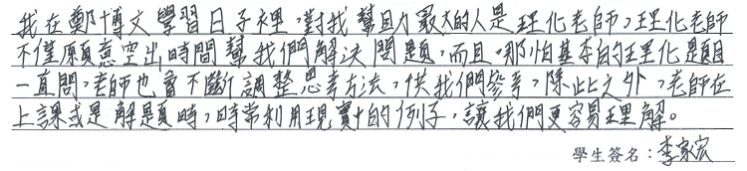 我在鄭博文學習日子裡，對我幫助最大的人是理化老師，理化老師
不僅願意空出時間幫我們解決問題，而且，那怕基本的理化題目
一直問，老師也會不斷調整思考方法，供我們參考，除此之外，老師在
上課或是解題時，時常利用現實中的例子，讓我們更容易理解。
學生簽名：李家宏